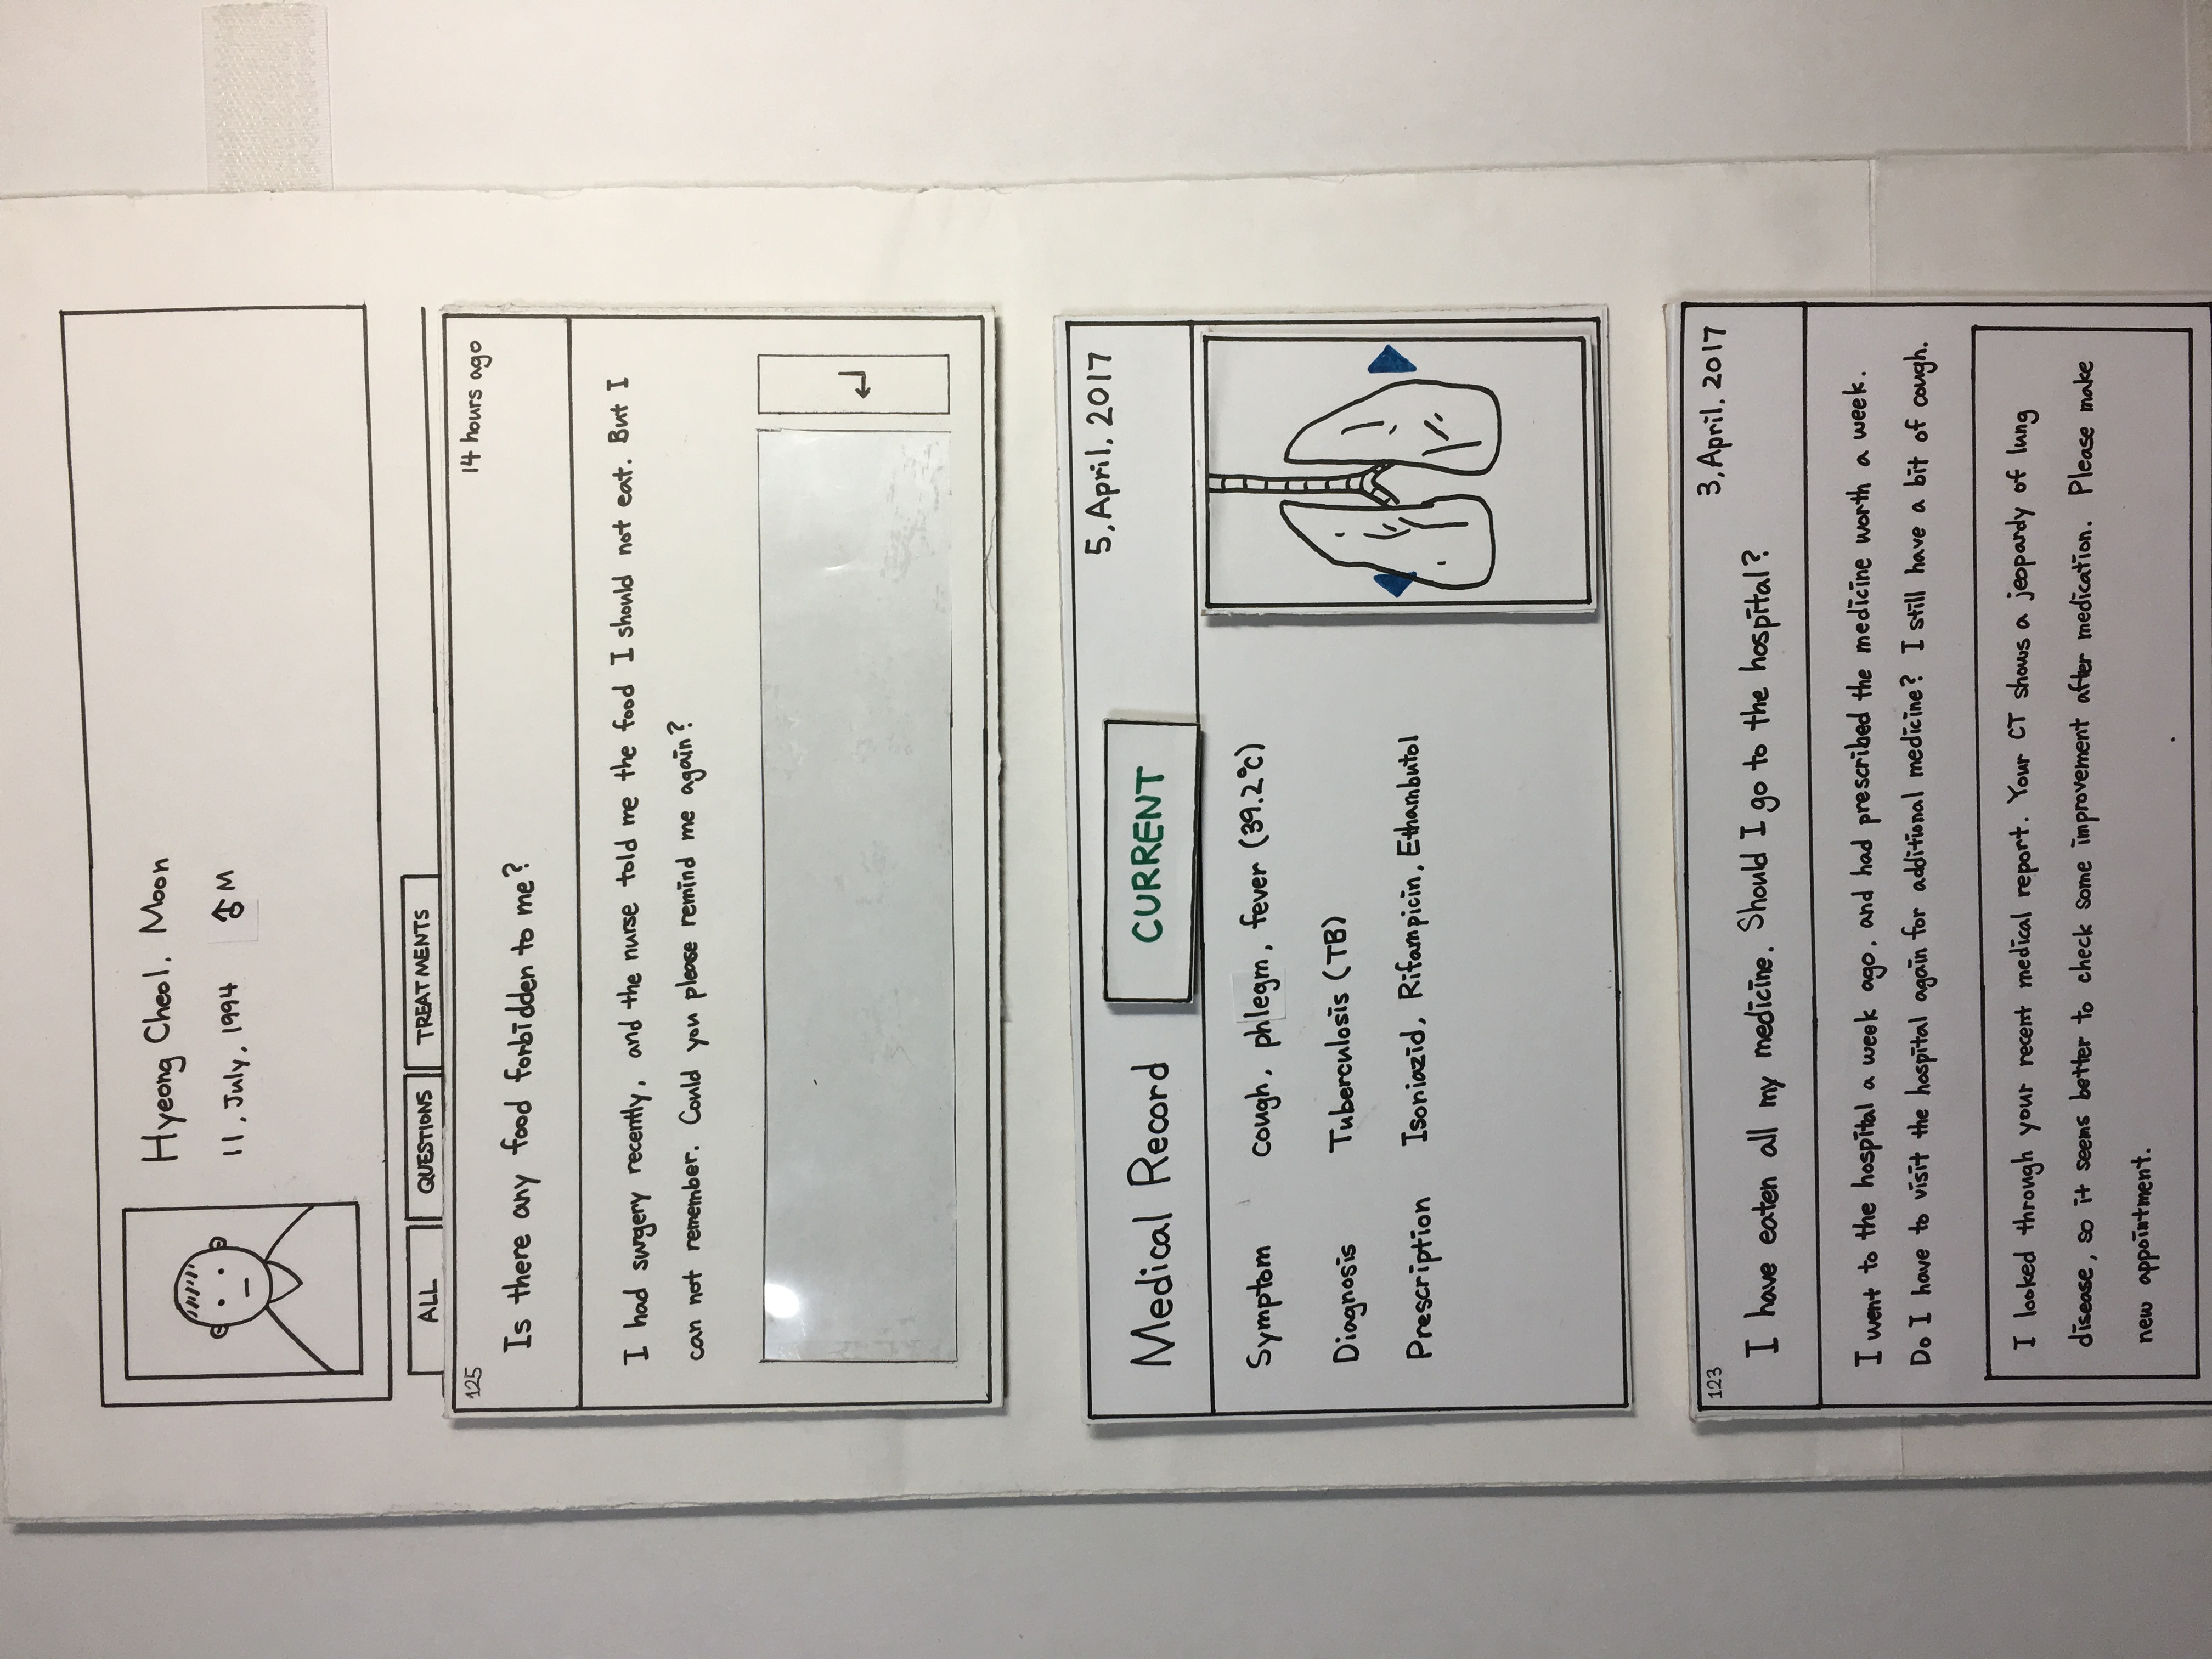 Hyeong Cheol. Moon
11, July, 1994 M
ALL QUESTIONS TREATMENTS
125 14 hours ago
Is there any food forbidden to me?
I had surgery recently, and the nurse told me the food I should not eat. But I
can not remember. Could you please remind me again?
5, April, 2017
Medical Record CURRENT
Symptom cough, phlegm, fever (39.2°C)
Diagnosis Tuberculosis (TB)
Prescription Isoniazid, Rifampicin, Ethambutol
123 3, April, 2017
I have eaten all my medicine. Should I go to the hospital?
I went to the hospital a week ago, and had prescribed the medicine worth a week.
Do I have to visit the hospital again for additional medicine? I still have a bit of cough.
I looked through your recent medical report. Your CT shows a jeopardy of lung
disease, so it seems better to check some improvement after medication. Please make
new appointment.